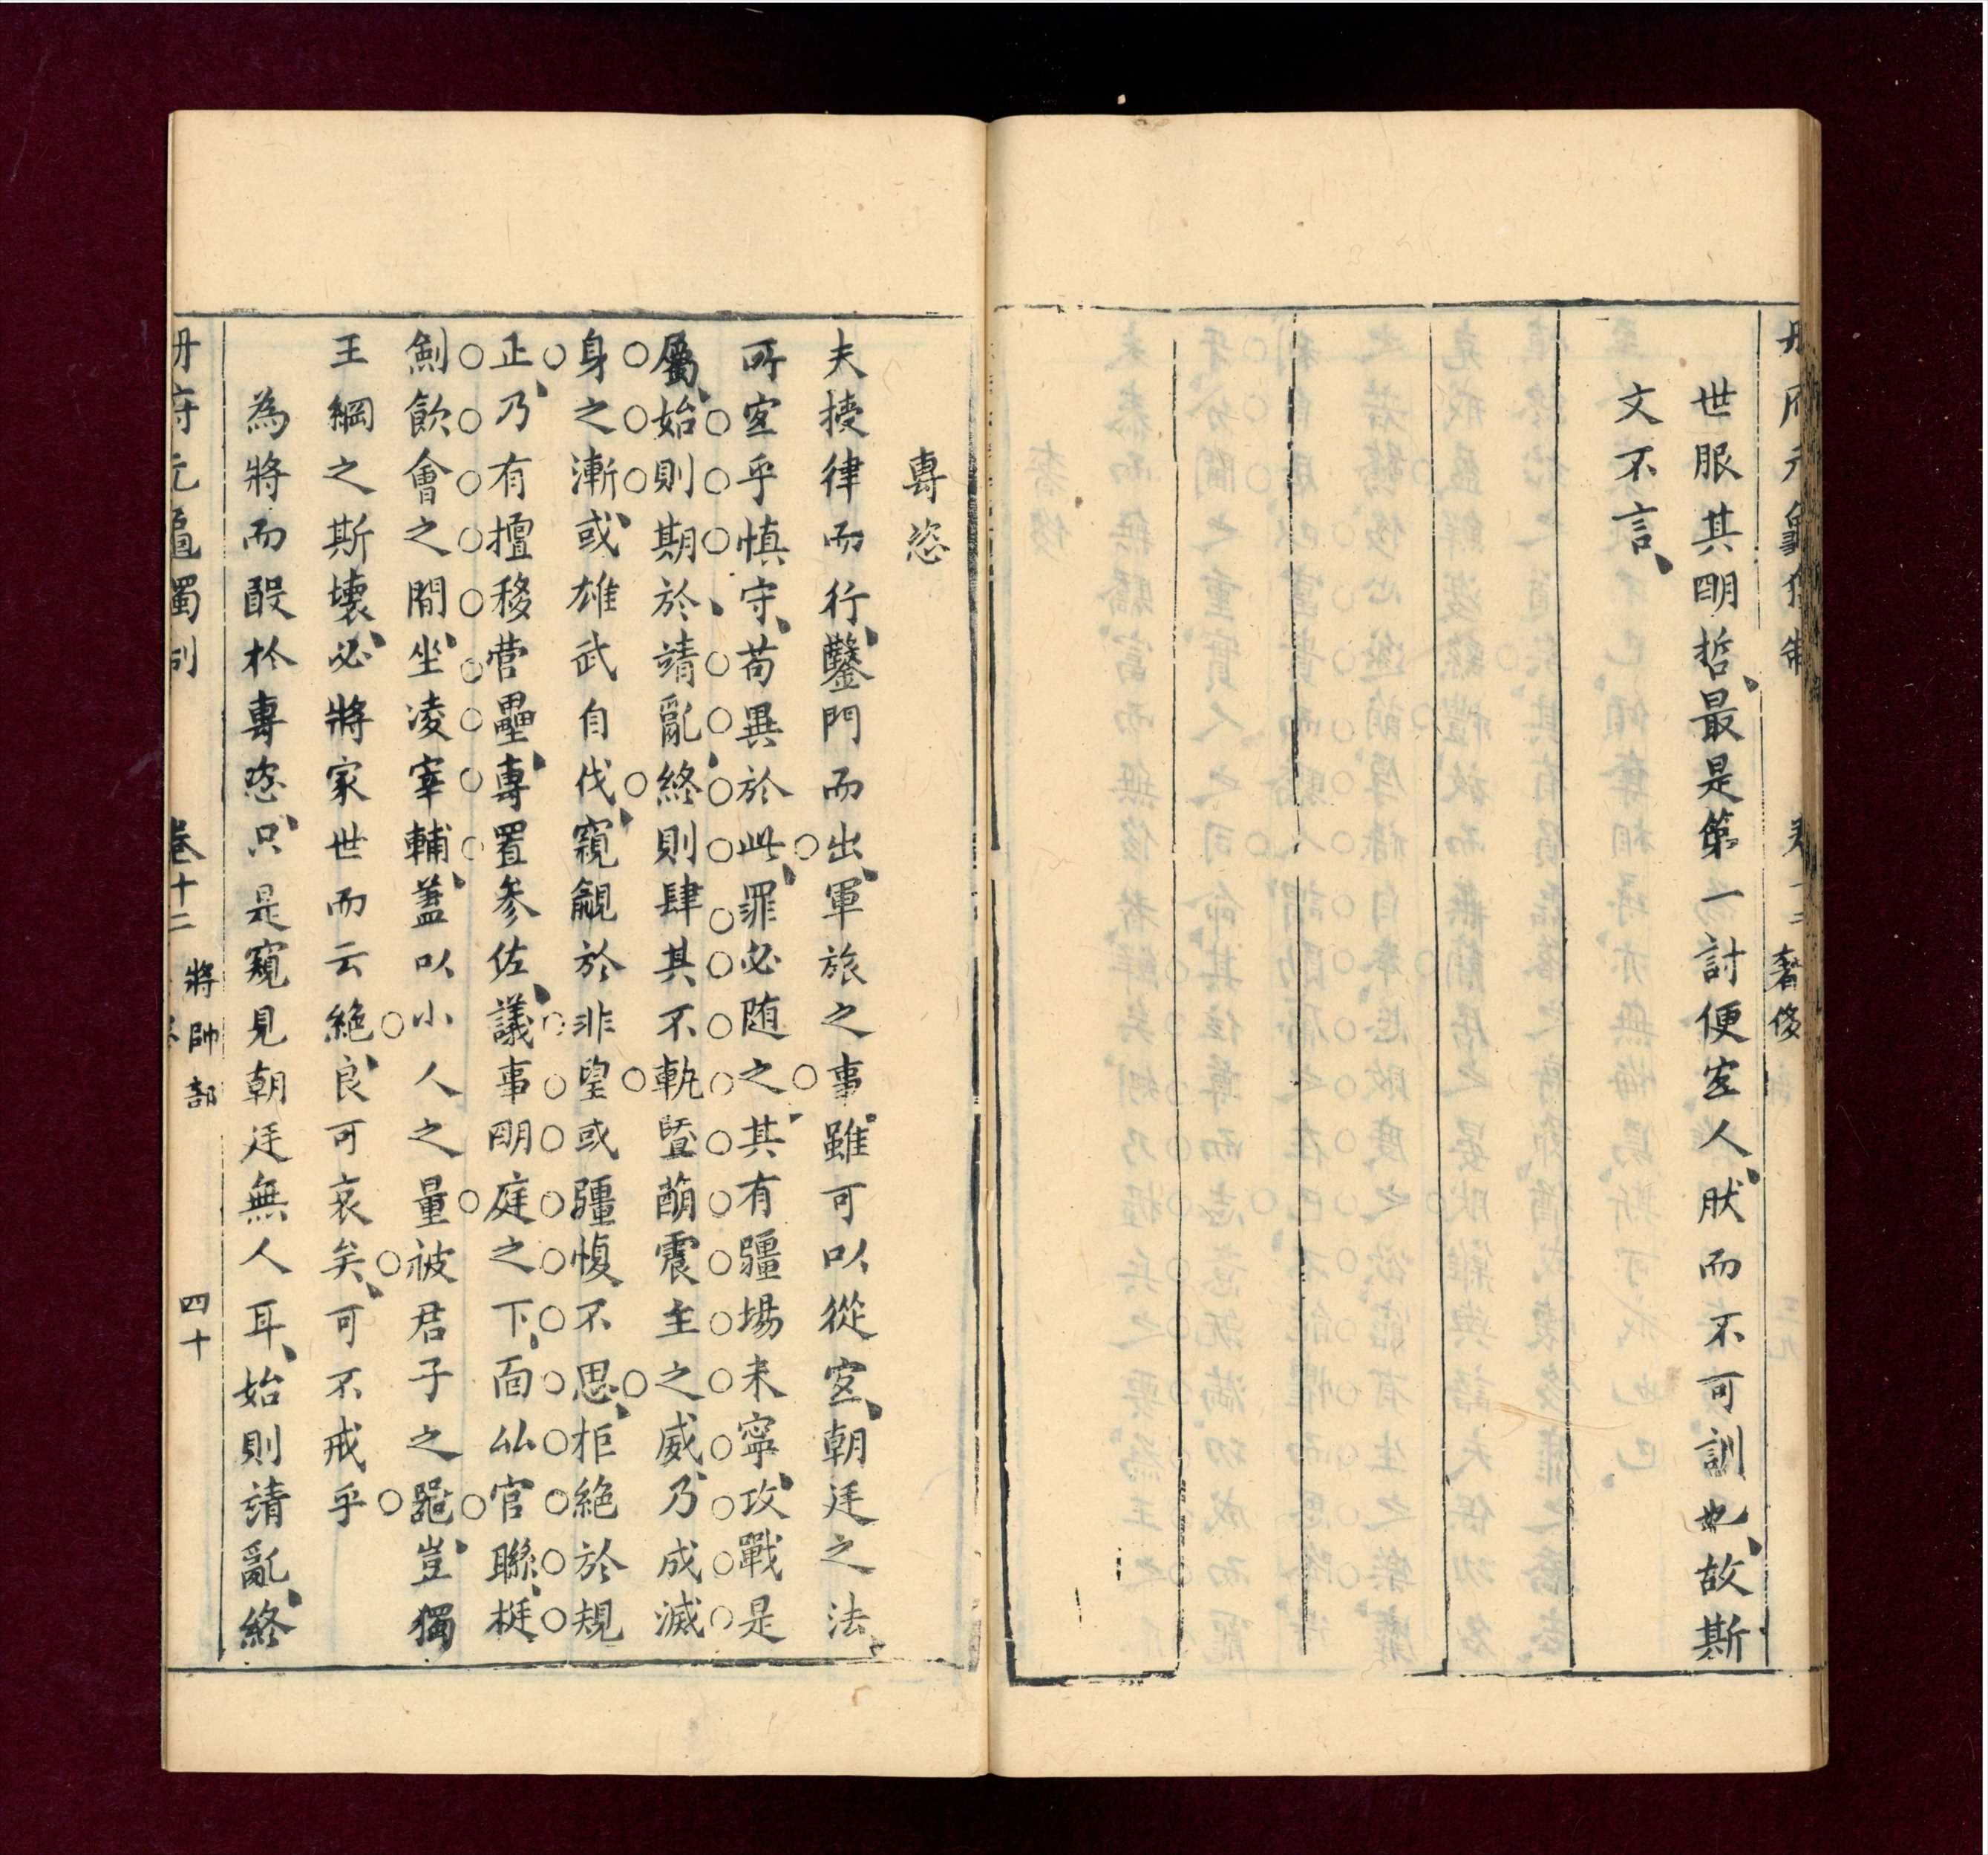 世服其明哲最是第一討便宜人肰而不可訓也故斯
文不言
專恣
夫㨗律而行鑿門而出軍旅之事雖可以從宜朝廷之法
所宜乎慎守苟異於此罪必随之其有疆場未寧攻戰是
屬始則期於靖亂終則肆其不軌曁萠震主之威乃成滅
身之漸或雄武自伐窺覦於非望或彊愎不思柜絶於規
正乃有擅移营壘專置参佐議事明庭之下面㕥官聯梃
劍飲會之間坐凌宰輔蓋以小人之量被君子之噐豈獨
王綱之斯壊必將家世而云絶良可哀矣可不戒乎
為將而毆於專恣只是窺見朝廷無人耳始則請亂終
冊府元龜獨制
卷十二
將帥部
四十
奢侈